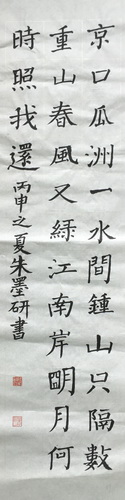 京口瓜洲一水間鍾山只隔數
重山春風又綠江南岸明月何
時照我還丙申之夏朱墨研書